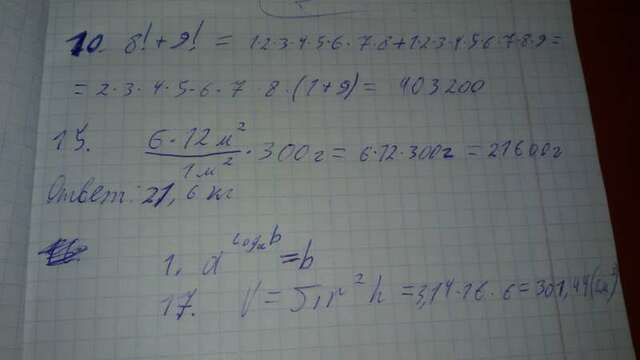 10. 8! + 9! = 1·2·3·4·5·6·7·8+1·2·3·4·5·6·7·8·9=
= 2·3·4·5·6·7·8·(1+9)= 403200
15. 6·12м²/1м² · 300г = 6·12·300г = 21600г
Ответ: 21,6 кг
1. a^(log_a b) = b
17. V = πr²h = 3,14·16·6 = 301,44(см³)